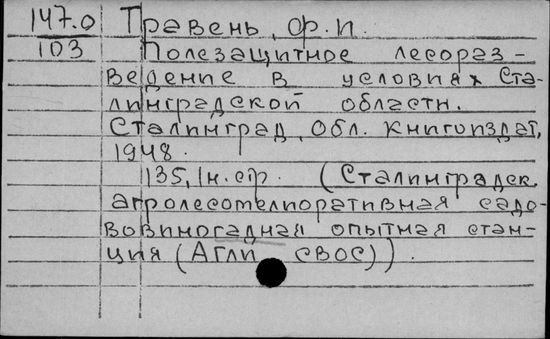 147.0 Травень, Ф.И.
103 Полезащитное лесораз-
ведение в условиях Ста-
линградской области.
Сталинград, Обл. книгоиздат,
1948.
135, 1н.стр. (Сталинградск.
агролесомелиоративная садо-
вовиноградная опытная стан-
ция (Агли СВОС)).